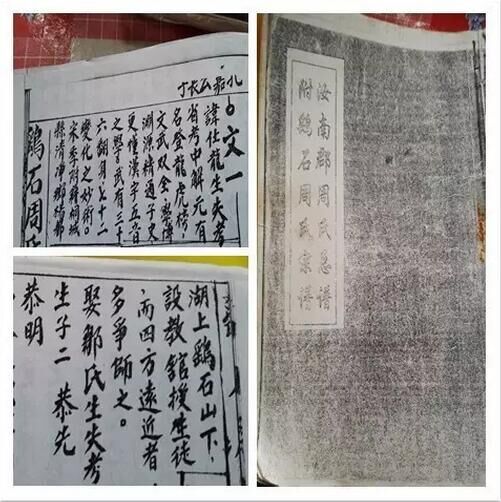 文一
諱仕龍生失考
省考中解元有
名登龍虎榜
文武双全
淵源精通子史
更懂漢字五音
之學武有三十
六翻身七十二
變化之妙術。
宋季附籍桐城
縣清淨鄉
鷄石周氏
湖上鷄石山下,
設教館授生徒
而四方遠近者
多爭師之。
娶鄒氏生失考
生子二 恭先
恭明
汝南郡周氏总谱
附鷄石周氏宗谱